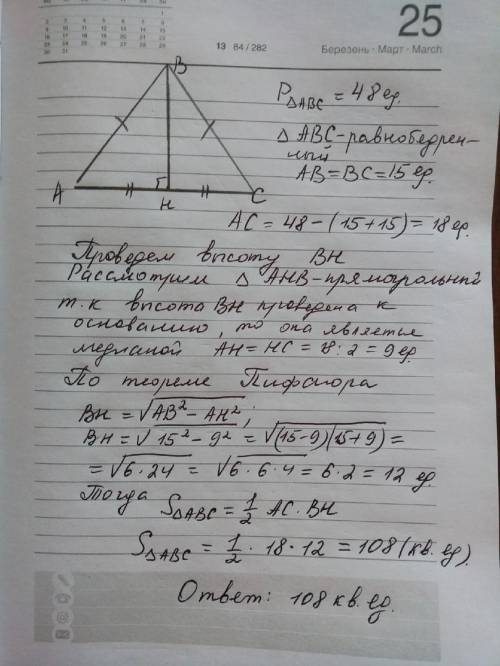 25
13 84 / 282
Березень · Март · March
B
A
H
C
P△ABC = 48 ед.
△ ABC - равнобедрен-
ный
AB = BC = 15 ед.
AC = 48 - (15 + 15) = 18 ед.
Проведем высоту BH
Рассмотрим △ AHB - прямоугольный
т.к высота BH проведена к
основанию, то она является
медианой AH = HC = 18 : 2 = 9 ед.
По теореме Пифагора
BH = √AB² - AH² ;
BH = √15² - 9² = √(15-9)(15+9) =
= √6 · 24 = √6 · 6 · 4 = 6 · 2 = 12 ед
Тогда S△ABC = 1/2 AC · BH
S△ABC = 1/2 · 18 · 12 = 108 (кв. ед).
Ответ: 108 кв. ед.